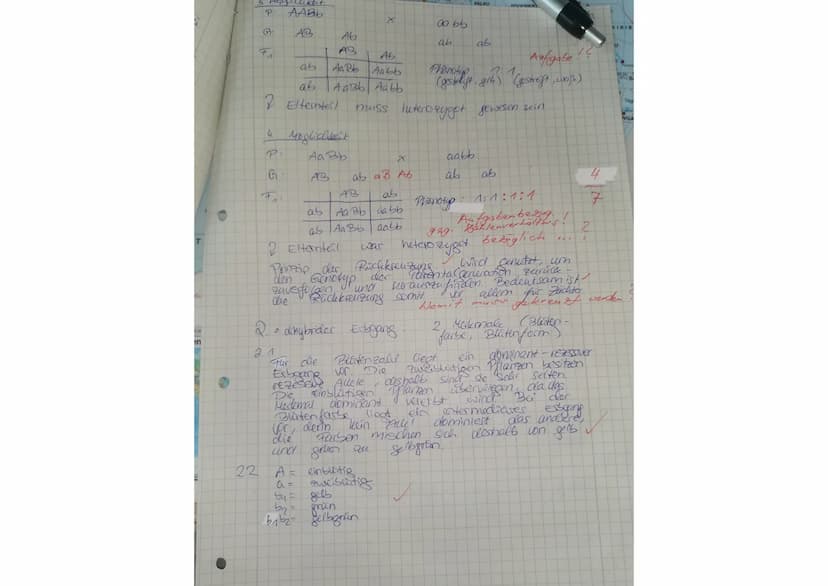 3. Möglichkeit
P: AABb x aabb
G: AB Ab ab ab
F1 AB Ab
Aufgabe !?
ab AaBb Aabb Phänotyp 1:1
ab AaBb Aabb (gestreift, gelb) (gestreift, weiß)
♀ Elternteil muss heterozygot gewesen sein
4. Möglichkeit
P: AaBb x aabb
G: AB ab aB Ab ab ab
4
7
F1: AB ab Phänotyp 1:1:1:1
ab AaBb aabb
ab AaBb aabb
Aufgabenbezug!
geg. Zahlenverhältnis?
♀ Elternteil war heterozygot bezüglich ...?
Prinzip der Rückkreuzung wird genutzt, um
den Genotyp der Parentalgeneration zurück-
zuverfolgen und herauszufinden. Bedeutsam ist
die Rückkreuzung somit vor allem für Züchter
Womit muss gekreuzt werden?
2. • dihybrider Erbgang 2 Merkmale (Blüten-
farbe, Blütenform)
2.1
Für die Blütenzahl liegt ein dominant-rezessiver
Erbgang vor. Die zweiblütigen Pflanzen besitzen
rezessive Allele, deshalb sind sie sehr selten.
Die einblütigen Pflanzen überwiegen, da das
Merkmal dominant vererbt wird. Bei der
Blütenfarbe liegt ein intermediärer Erbgang
vor, denn kein Allel dominiert das andere,
die Farben mischen sich deshalb von gelb
und grün zu gelbgrün.
2.2 A = einblütig
a = zweiblütig
b1 = gelb
b2 = grün
b1b2 = gelbgrün